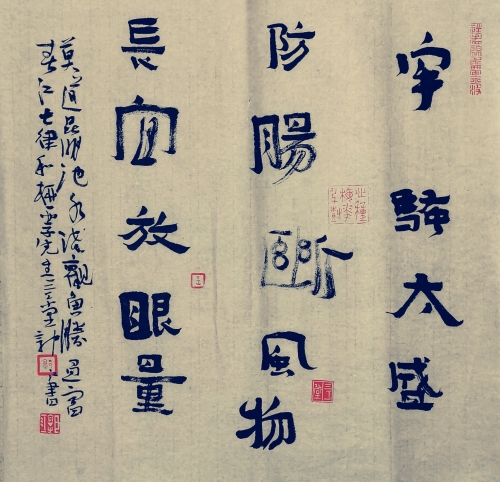 牢騷太盛
防腸斷風物
長宜放眼量
莫道昆明池水淺觀魚勝過富
春江七律和柳亞子先生書